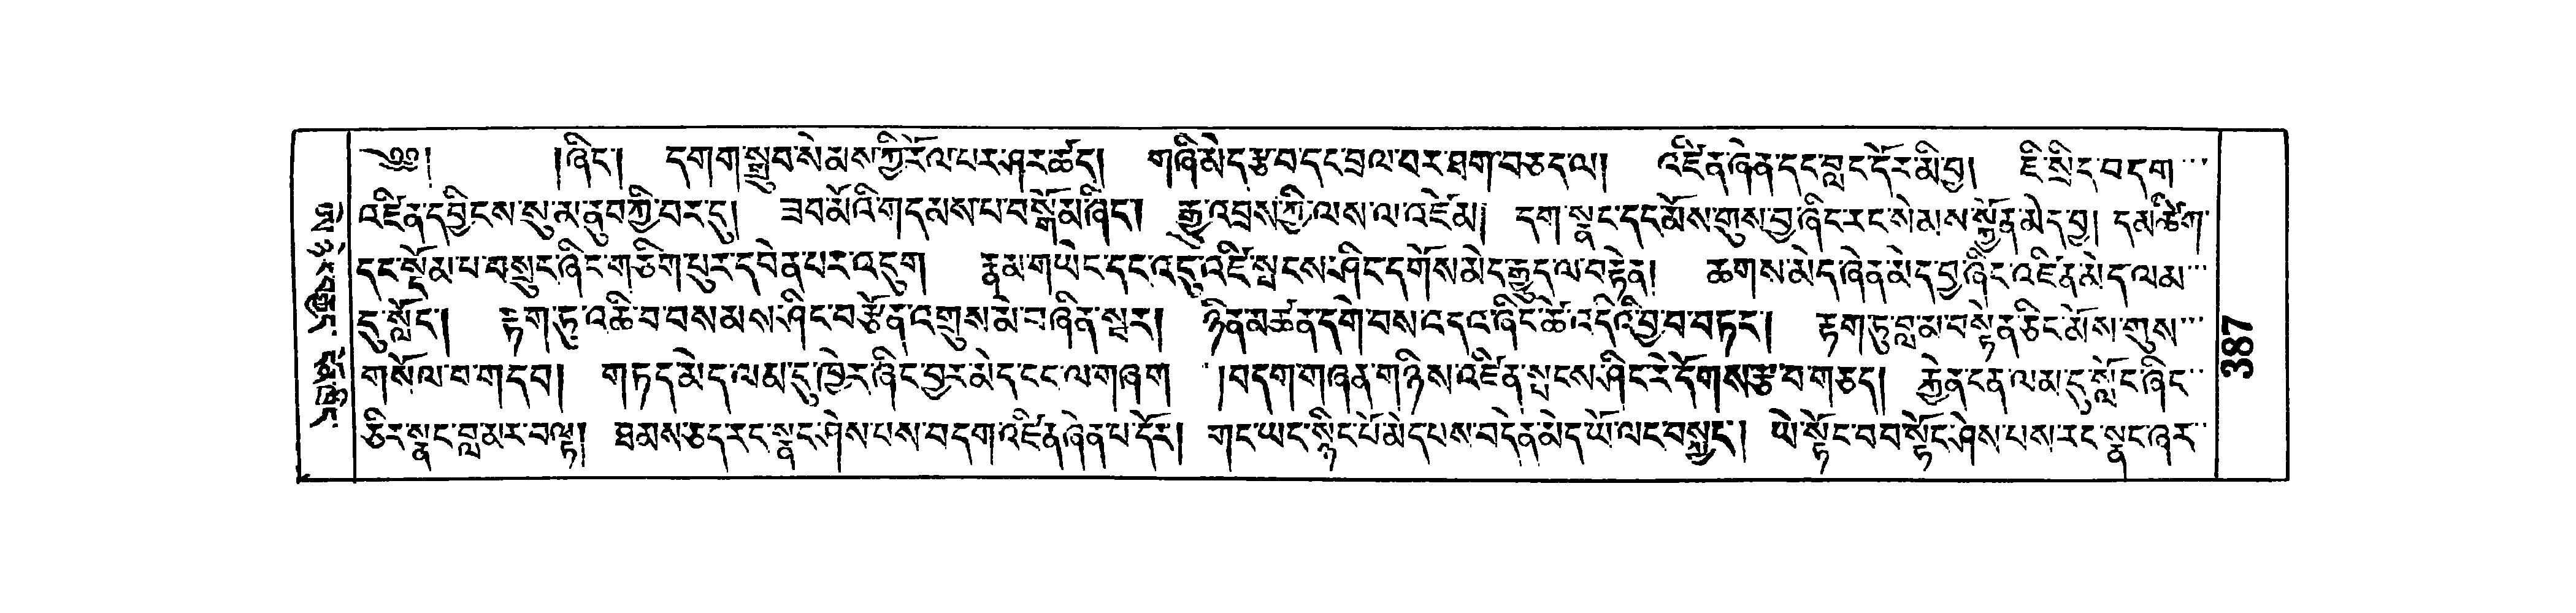 ༄༅། །ཞིང་། དགག་སྒྲུབ་སེམས་ཀྱི་རོལ་པར་ཤར་ཚོད། གཞི་མེད་རྩ་བ་དང་བྲལ་བར་ཐག་བཅད་ལ། འཛིན་ཞེན་དང་བླང་དོར་མི་བྱ། ཇི་སྲིད་བདག་
འཛིན་དབྱིངས་སུ་མ་ནུབ་ཀྱི་བར་དུ། ཟབ་མོའི་གདམས་པ་བསྒོམ་ཞིང་། རྒྱུ་འབྲས་ཀྱི་ལས་ལ་འཛེམ། དག་སྣང་དང་མོས་གུས་བྱ་ཞིང་རང་སེམས་སྐྱོན་མེད་བྱ། དམ་ཚིག་
དང་སྡོམ་པ་བསྲུང་ཞིང་གཅིག་པུར་དབེན་པར་འདུག རྣམ་གཡེང་དང་འདུ་འཛི་སྤངས་ཤིང་དགོས་མེད་རྒྱུད་ལ་བརྟེན། ཆགས་མེད་ཞེན་མེད་བྱ་ཞིང་འཛིན་མེད་ལམ་
དུ་སློང་། རྟག་ཏུ་འཆི་བ་བསམས་ཤིང་བརྩོན་འགྲུས་མེ་བཞིན་སྦར། ཉིན་མཚན་དགེ་བས་འདའ་ཞིང་ཚེ་འདིའི་བྱ་བ་བཏང་། རྟག་ཏུ་བླ་མ་བསྟེན་ཅིང་མོས་གུས་
གསོལ་བ་གདབ། གཏད་མེད་ལམ་དུ་ཁྱེར་ཞིང་བྱར་མེད་ངང་ལ་གཞག །བདག་གཞན་གཉིས་འཛིན་སྤངས་ཤིང་རེ་དོགས་རྩ་བ་གཅད། རྐྱེན་ངན་ལམ་དུ་སློང་ཞིང་
ཅིར་སྣང་བླ་མར་བལྟ། ཐམས་ཅད་རང་སྣང་ཤེས་པས་བདག་འཛིན་ཞེན་པ་དོར། གང་ཡང་སྙིང་པོ་མེད་པས་བདེན་མེད་ཡོ་ལང་བསྐྱང་། ཡེ་སྟོང་བབ་སྟོང་ཤེས་པས་རང་སྣང་ཞར་